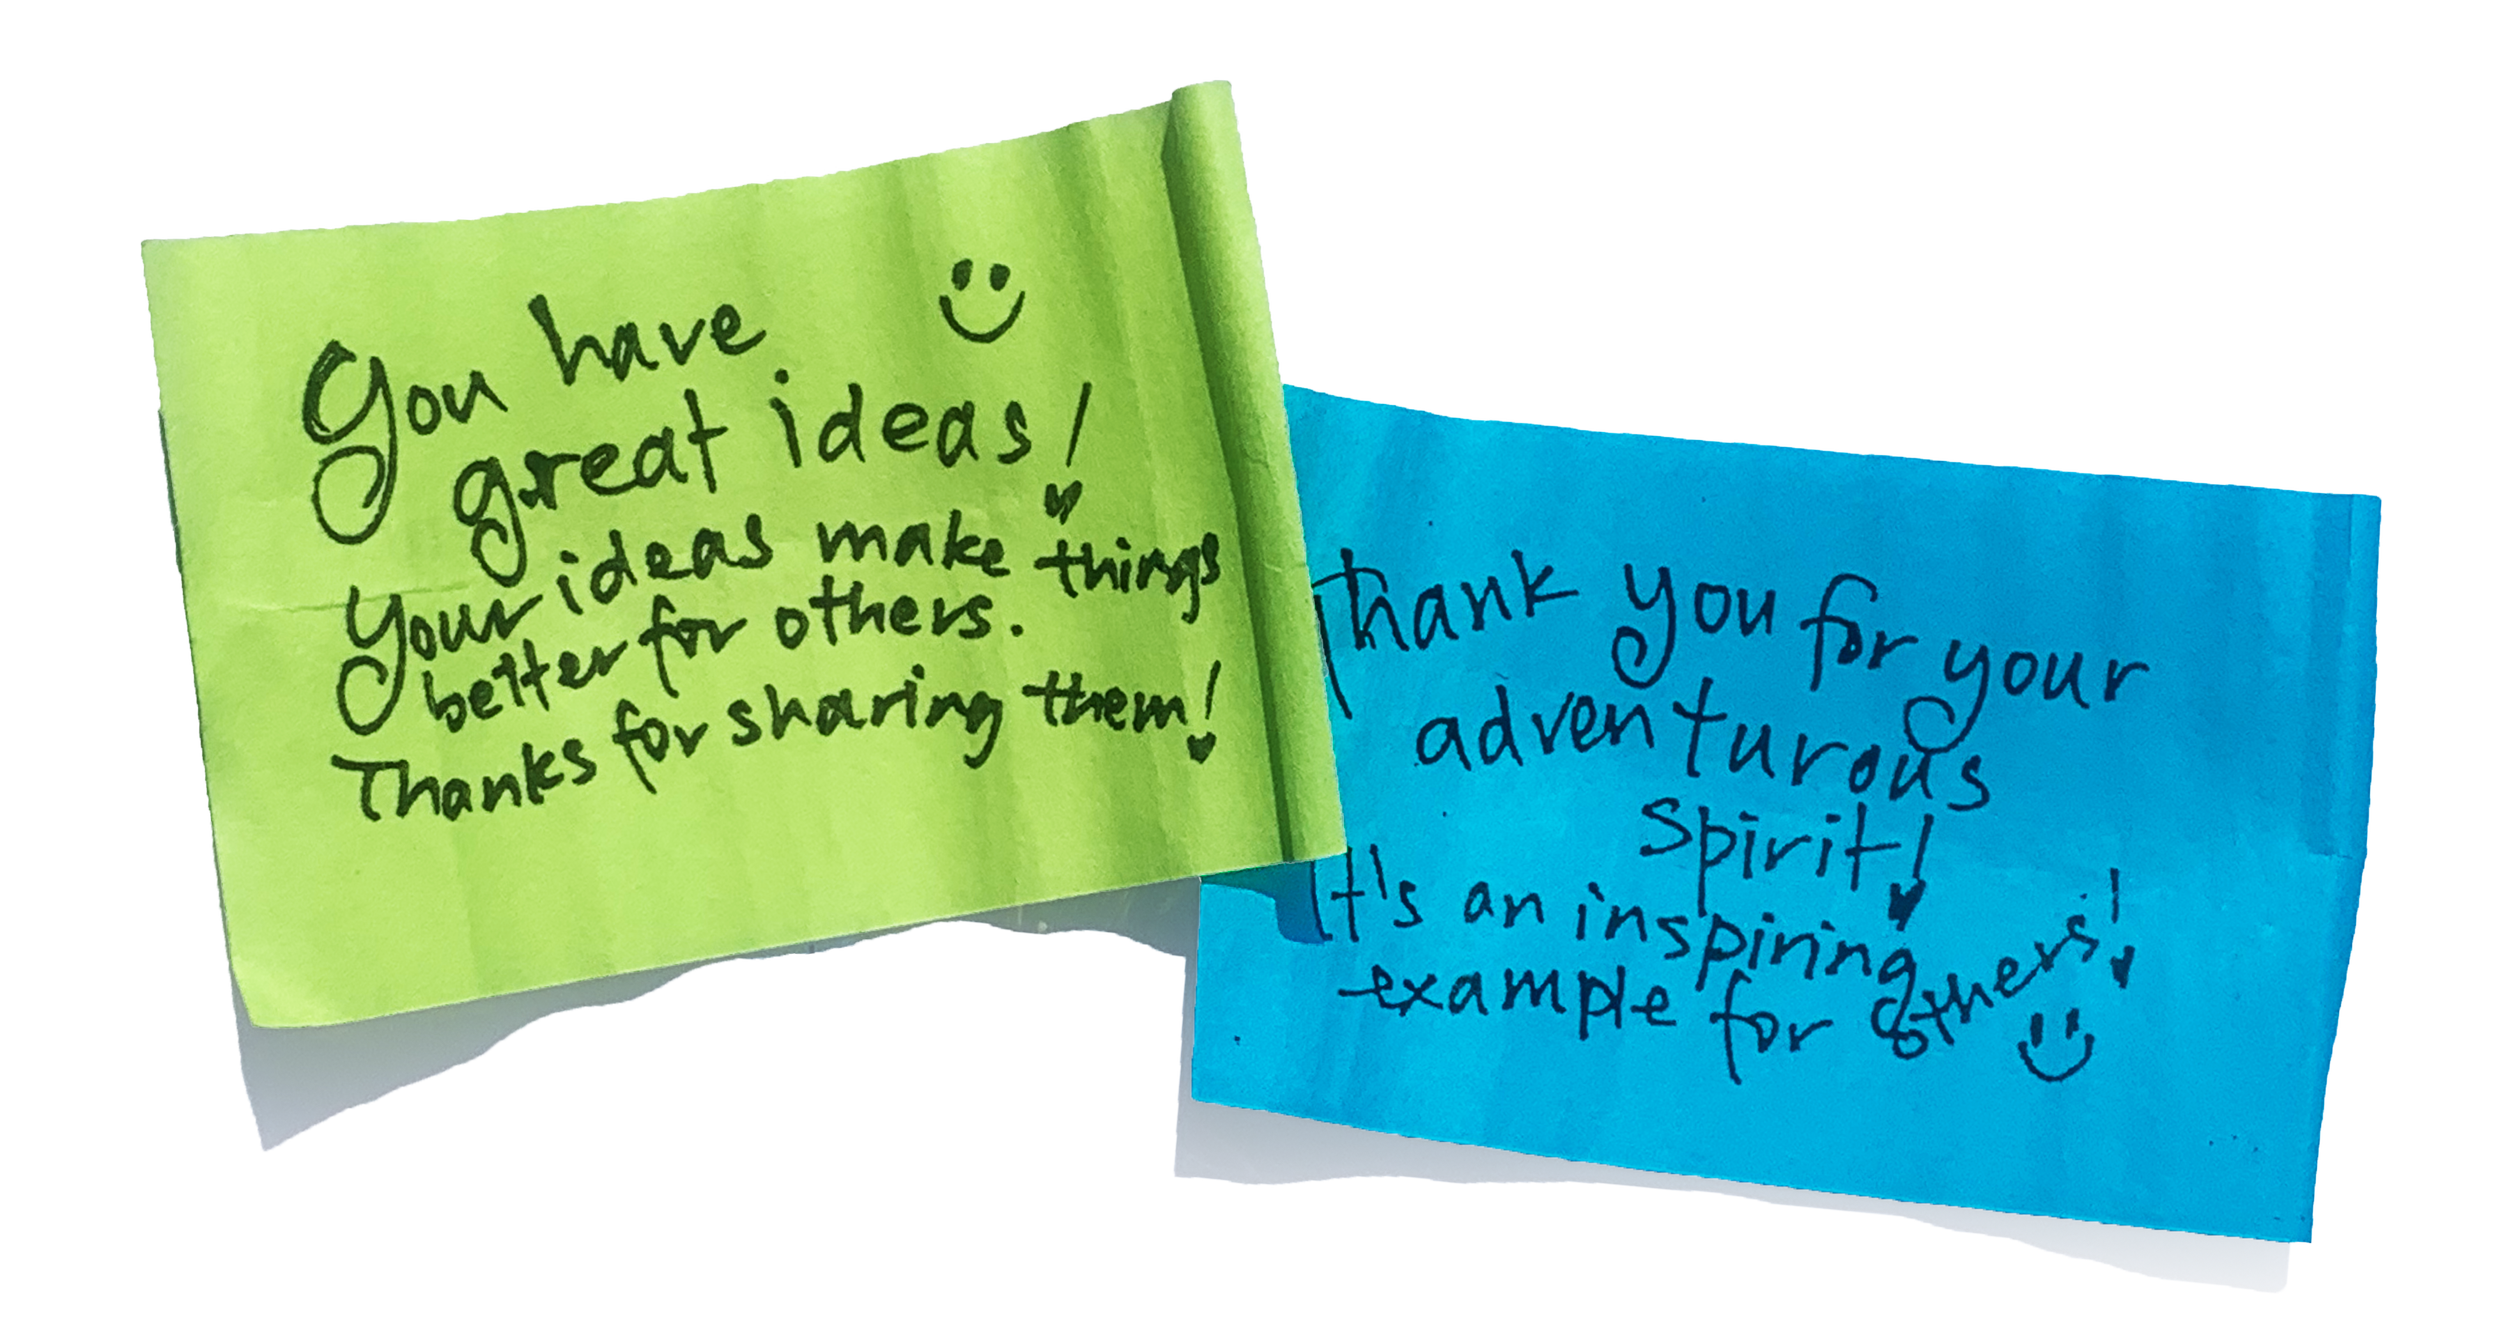 You have
great ideas!
Your ideas make things
better for others.
Thanks for sharing them!
Thank you for your
adventurous
spirit!
It's an inspiring
example for others!